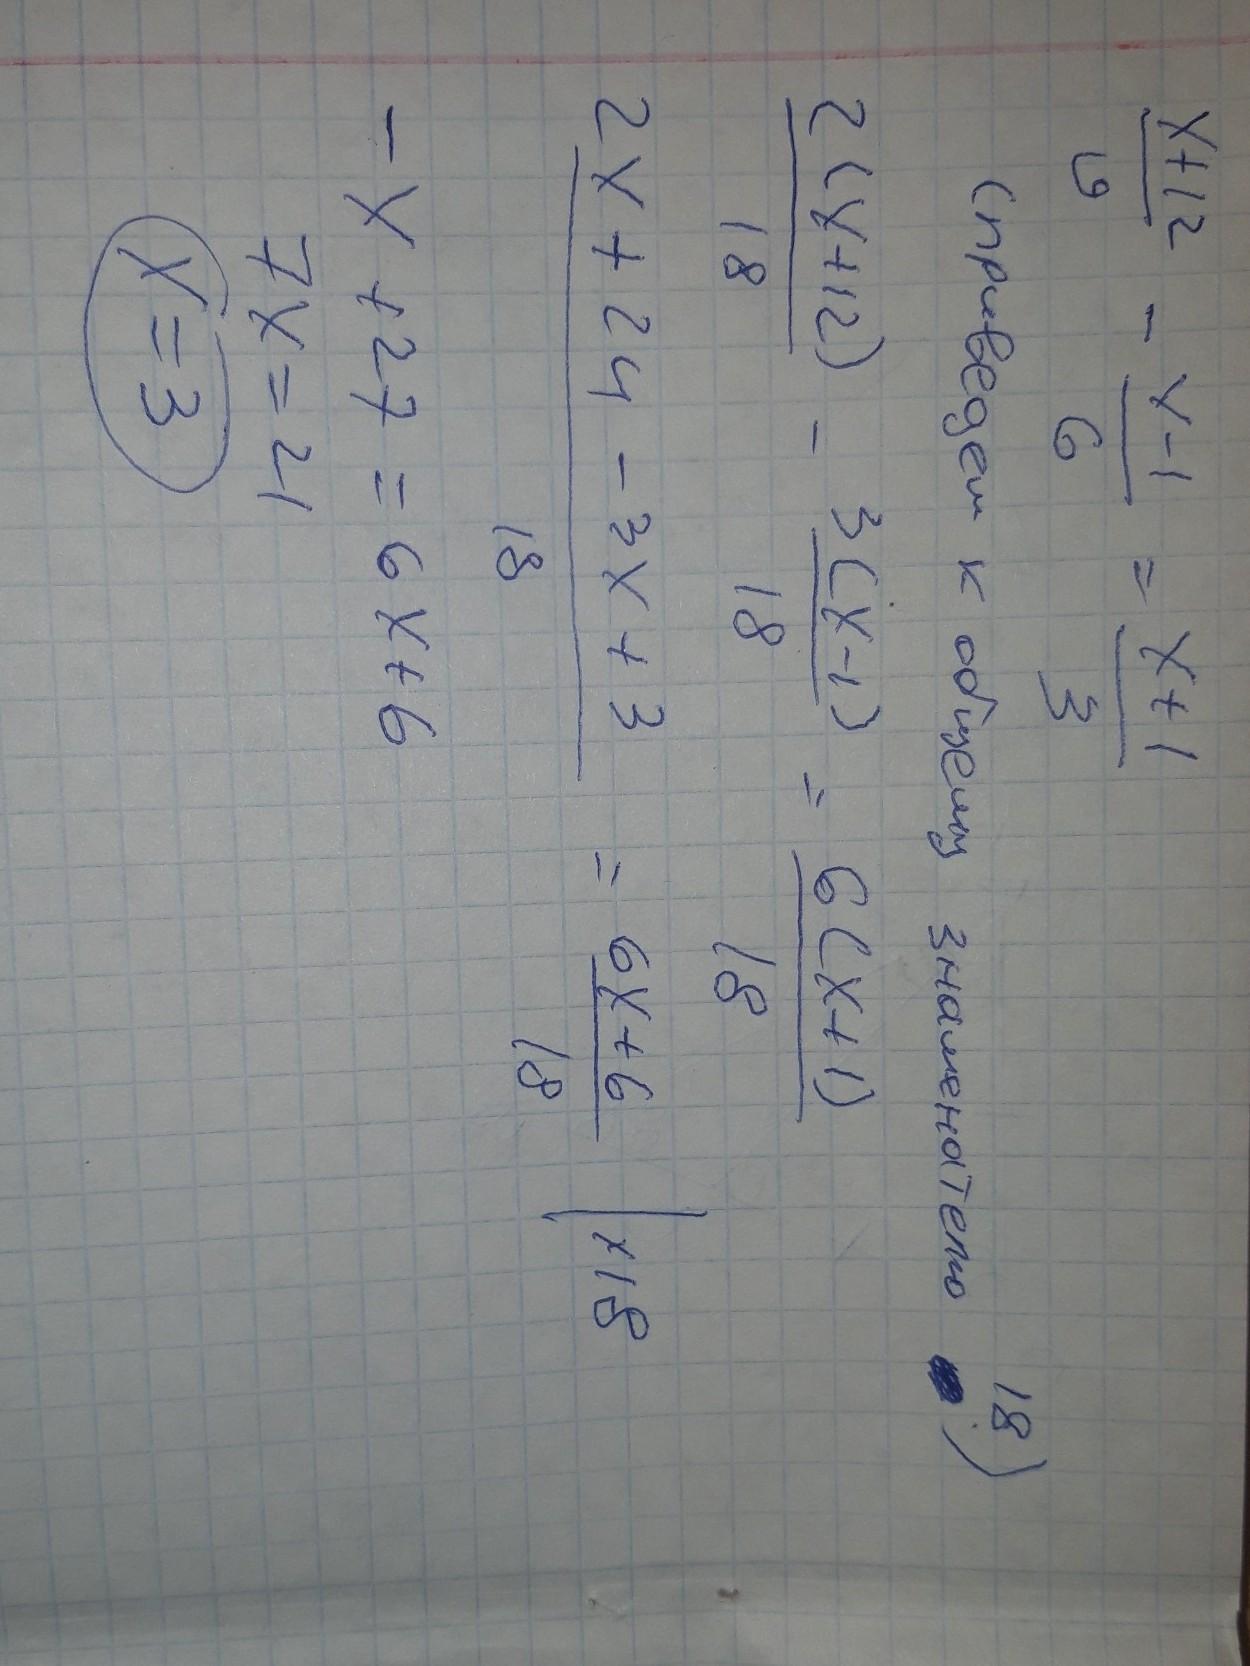 x+12/9 - x-1/6 = x+1/3
(приведем к общему знаменателю 18)
2(x+12)/18 - 3(x-1)/18 = 6(x+1)/18
2x+24-3x+3/18 = 6x+6/18 | x18
-x+27=6x+6
7x=21
x=3